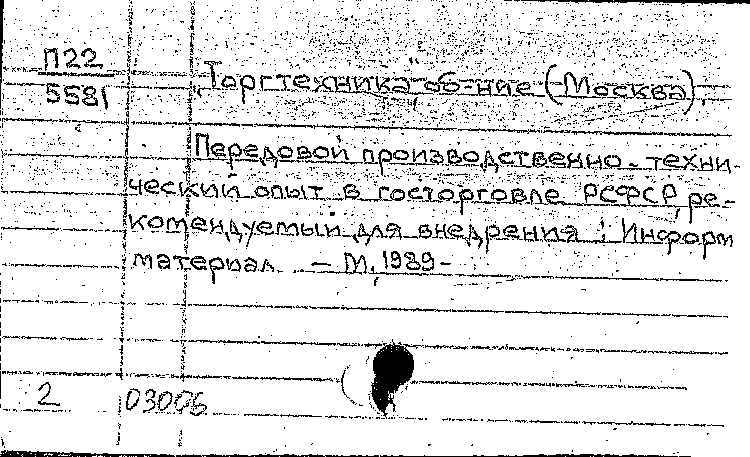 П22
5581
"Торгтехника" об-ние (Москва).
Передовой производственно-техни-
ческий опыт в госторговле РСФСР, ре-
комендуемый для внедрения : Информ
материал. - М., 1989-
2 03006